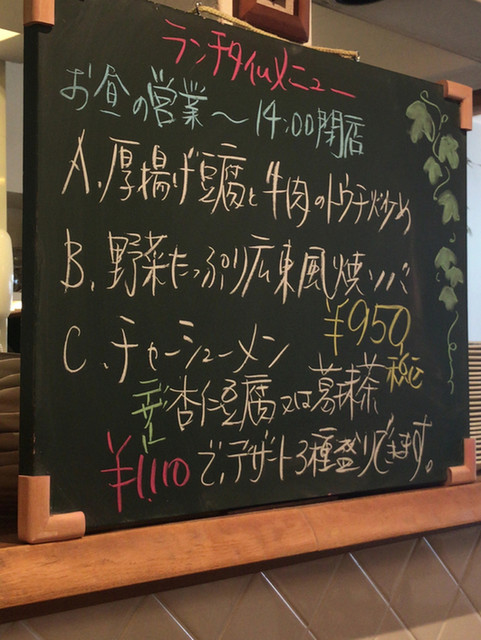 ランチタイムメニュー
お昼の営業～14:00閉店
A、厚揚げ豆腐と牛肉のトウチ炒め
B、野菜たっぷり広東風焼ソバ
C、チャーシューメン
¥950
杏仁豆腐又は葛抹茶
¥1,110でデザート3種盛りできます。